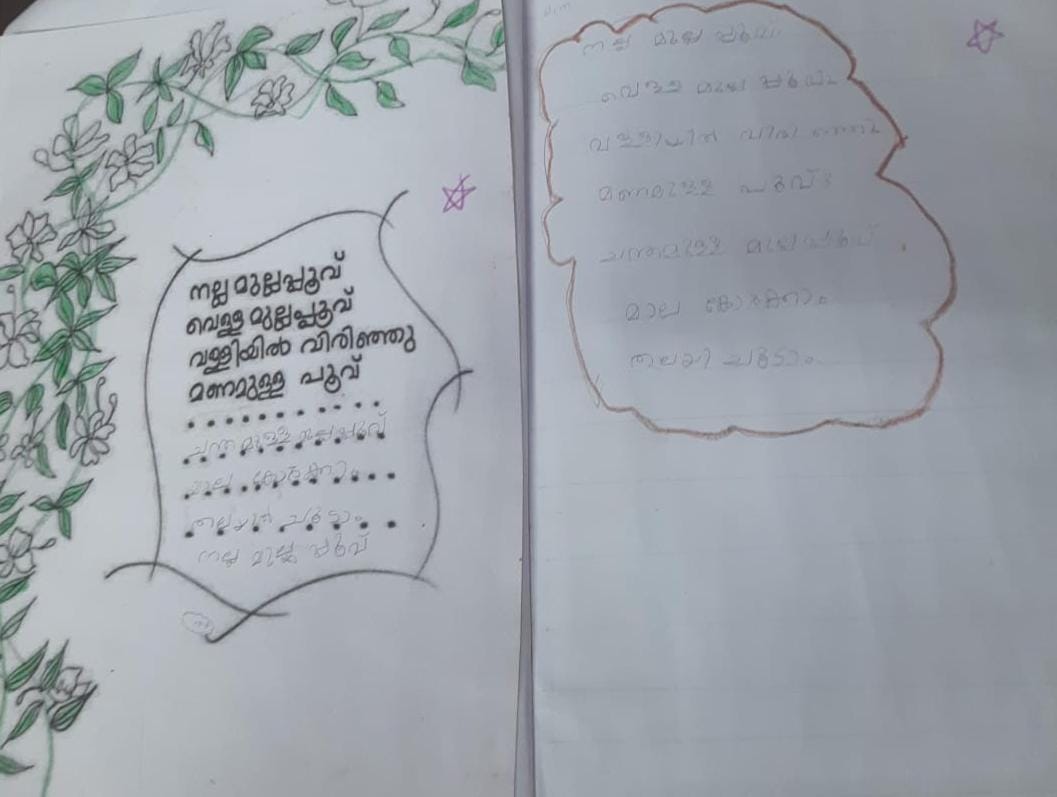 നല്ല മുല്ലപ്പൂവ്
വെള്ള മുല്ലപ്പൂവ്
വള്ളിയിൽ വിരിഞ്ഞു
മണമുള്ള പൂവ്
ചന്തമുള്ള മുല്ലപ്പൂവ്
മാല കോർക്കാം
തലയിൽ ചൂടാം
നല്ല മുല്ലപ്പൂവ്
നല്ല മുല്ല പ്പൂവ്
വെള്ള മുല്ല പ്പൂവ്
മണമുള്ള പൂവ്
ചന്തമുള്ള മുല്ലപ്പൂവ്
മാല കോർക്കാം
ചൂടാം